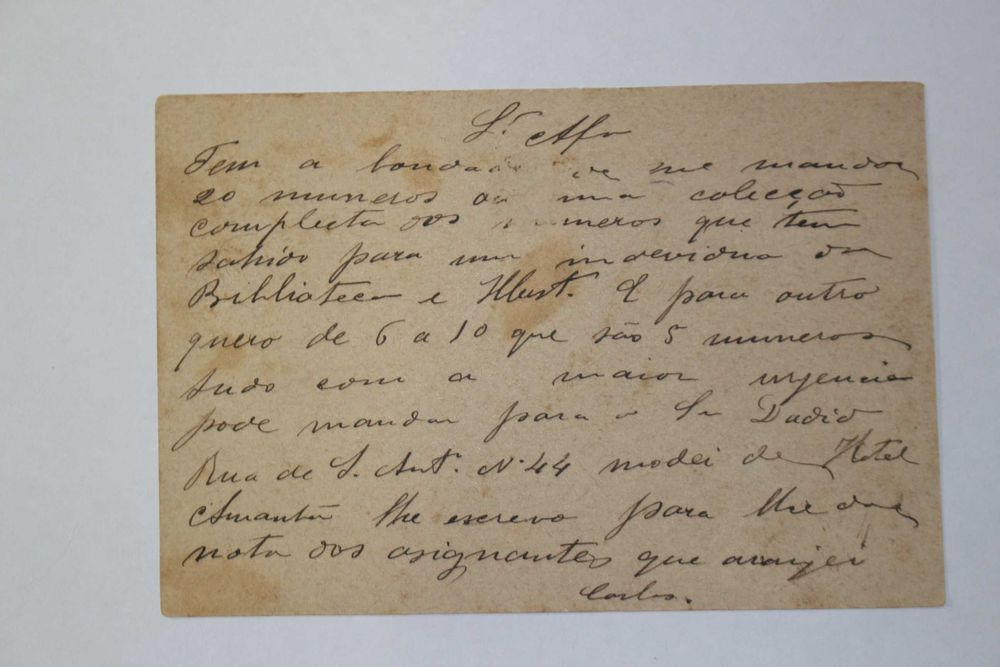 Sr. Afr
Tem a bondade de me mandar
20 numeros ou uma colecção
complecta dos numeros que têm
sahido para um individuo da
Biblioteca e Illust. E para outro
quero de 6 a 10 que são 5 numeros
tudo com a maior urgencia
pode mandar para o Sr
Rua de S. Antº. Nº 44 modei de Hotel
Amanhã lhe escrevo para lhe dar
nota dos asignantes que aranjei
Carlos.